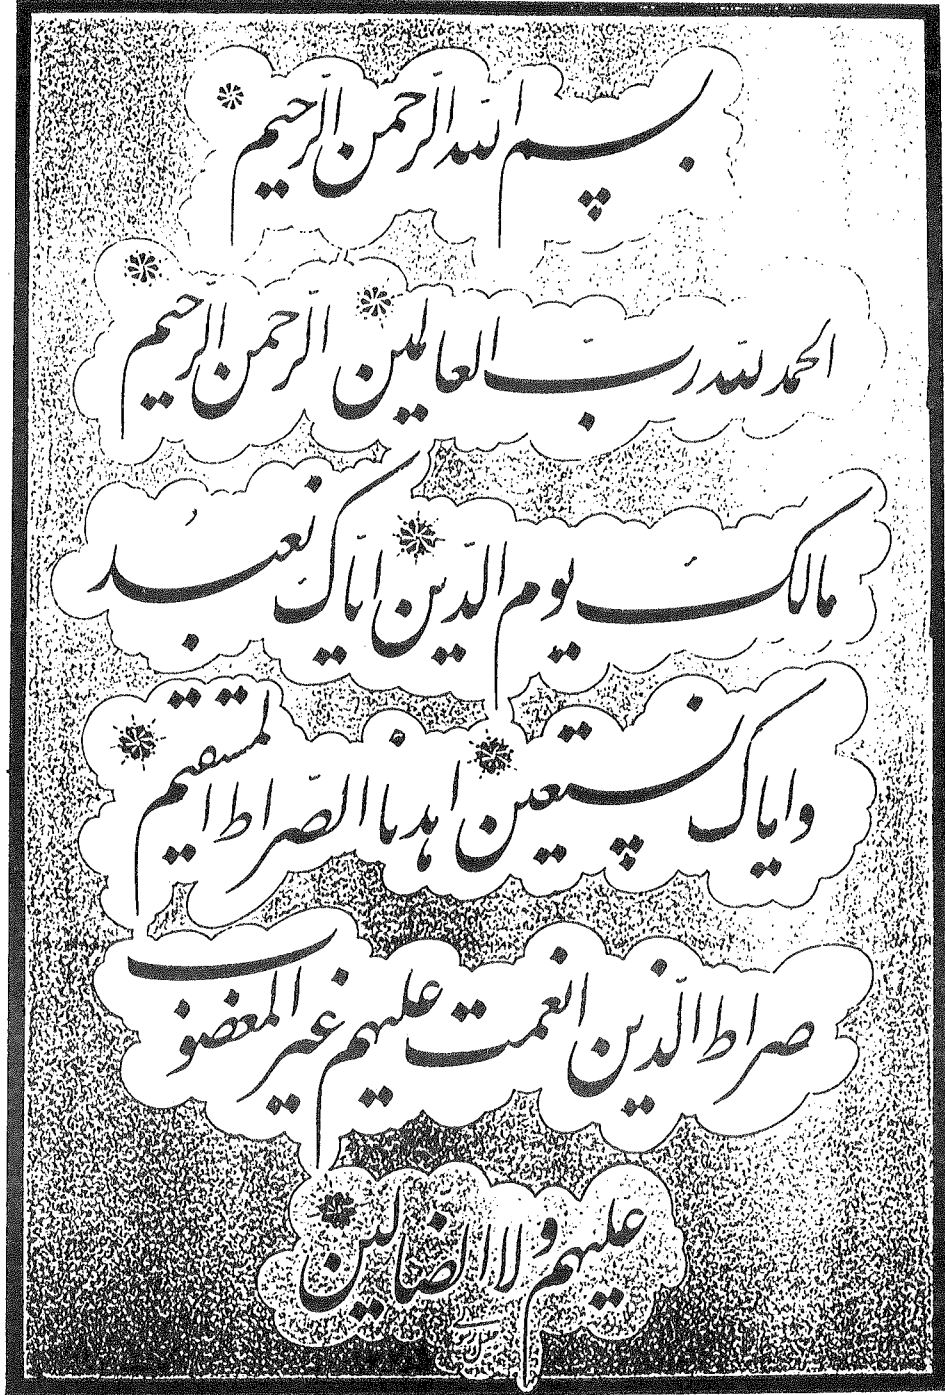 بسم الله الرحمن الرحیم
الحمد لله ربّ العالمین الرّحمن الرّحیم
مالکَ یوم الدّین ایّاکَ نعبدُ
وایاک نستعین اهدنا الصّراط المستقیم
صراط الّذین انعمت علیهم غیر المغضوب
علیهم ولا الضالین